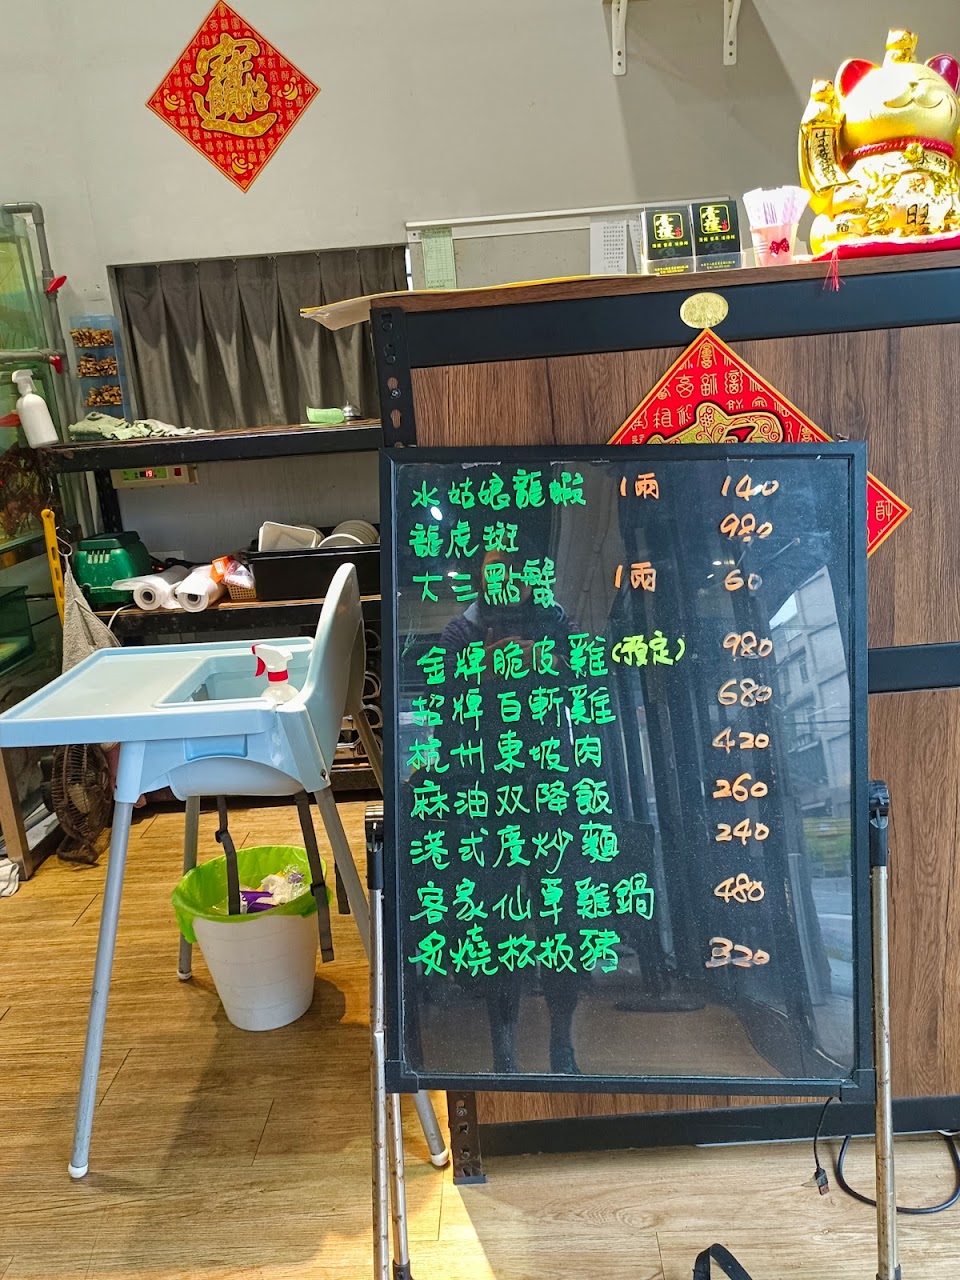 旺
水姑娘龍蝦 1兩 140
龍虎斑 980
大三點蟹 1兩 60
金牌脆皮雞(預定) 980
招牌白斬雞 680
杭州東坡肉 420
麻油双降飯 260
港式度炒麵 240
客家仙草雞鍋 480
炙燒松板豬 320